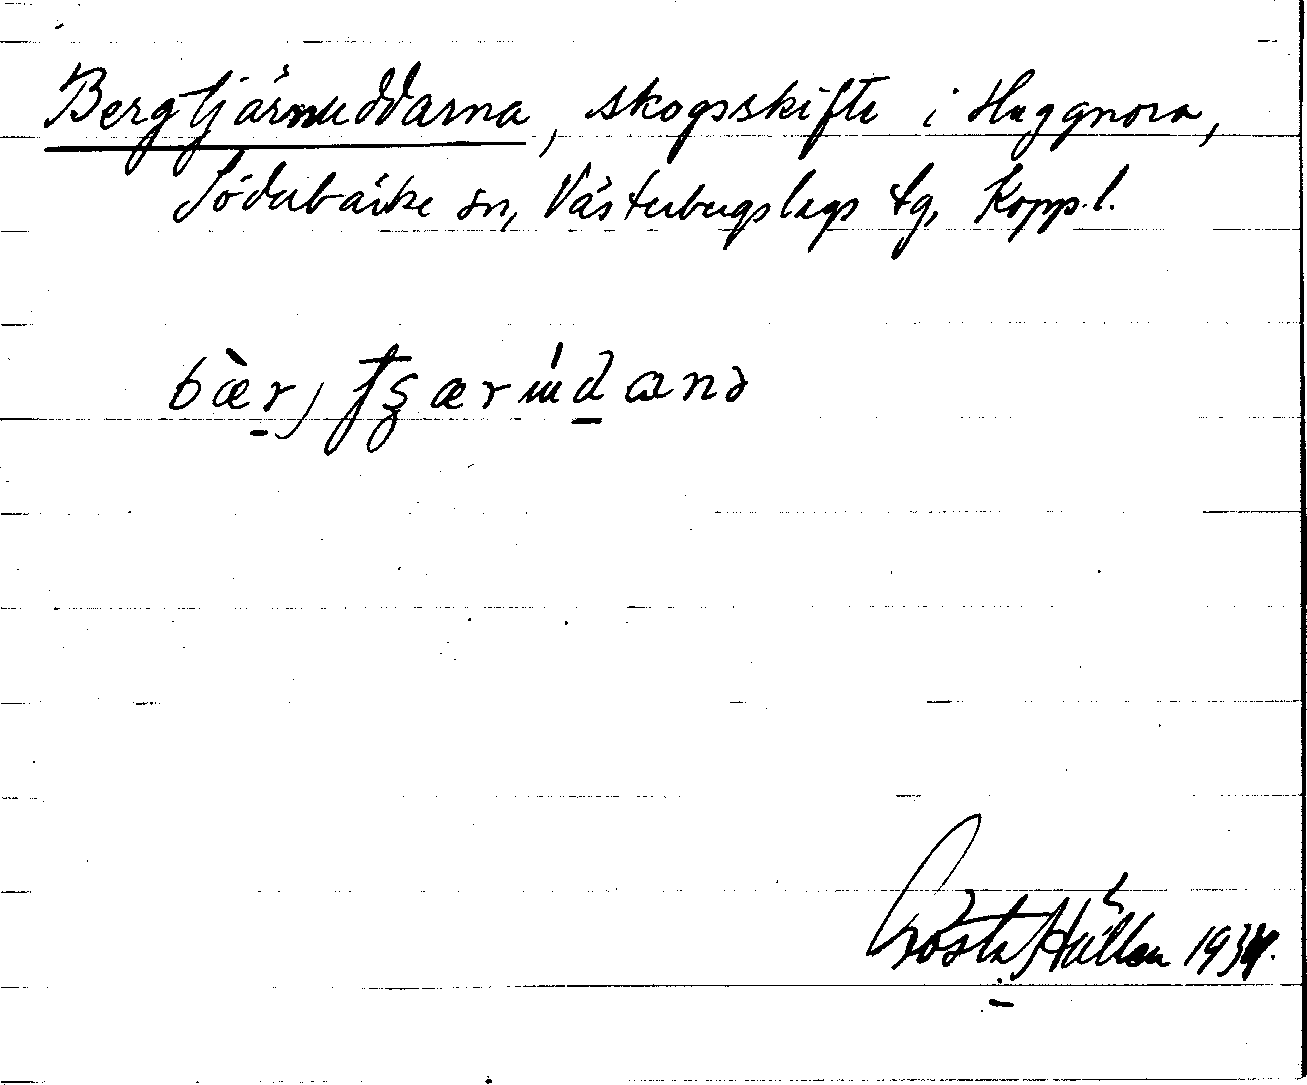 Bergtjärnuddarna, skogsskifte i Haggnora,
Söderbärke sn, Västerbergslags tg, Kopp.l.
Gösta Hallan 1934.